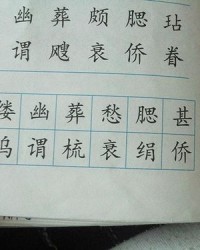 幽葬颇腮玷
谓飕衰侨眷
偻幽葬愁腮甚
坞谓梳衰绢侨